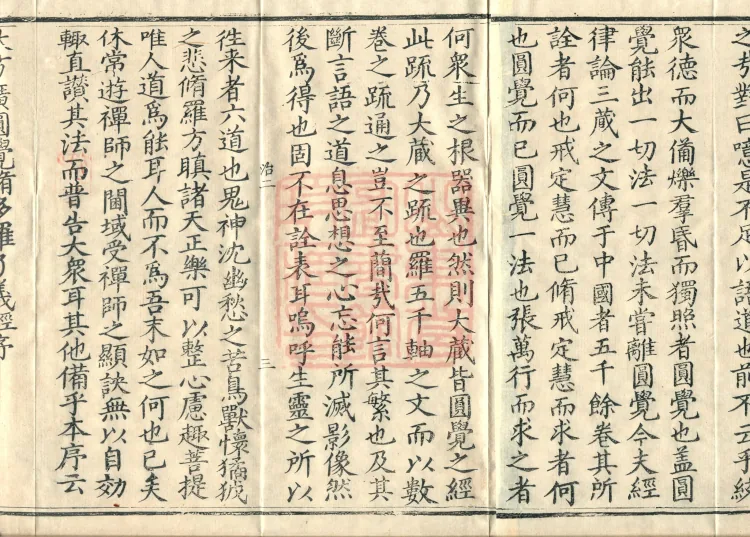 之哉對曰噫是不足以語道也前不云乎統
眾德而大備爍羣昏而獨照者圓覺也蓋圓
覺能出一切法一切法未嘗離圓覺今夫經
律論三蔵之文傳于中國者五千餘卷其所
詮者何也戒定慧而已脩戒定慧而求者何
也圓覺而已圓覺一法也張萬行而求之者
何衆生之根器異也然則大蔵皆圓覺之經
此疏乃大蔵之疏也羅五千軸之文而以數
巻之疏通之豈不至蕳㢤何言其繁也及其
斷言語之道息思想之心忘能所滅影像然
後為得也固不在詮表耳嗚呼生靈之所以
治二
三
徃来者六道也鬼神沈幽愁之苦鳥獸懷獝狘
之悲脩羅方瞋諸天正樂可以整心慮趣菩提
唯人道為能耳人而不為吾末如之何也已矣
休常遊禪師之閫域受禪師之顯訣無以自効
輙直讃其法而普告大衆耳其他備乎本序云
大方廣圓覺脩多羅了義經序